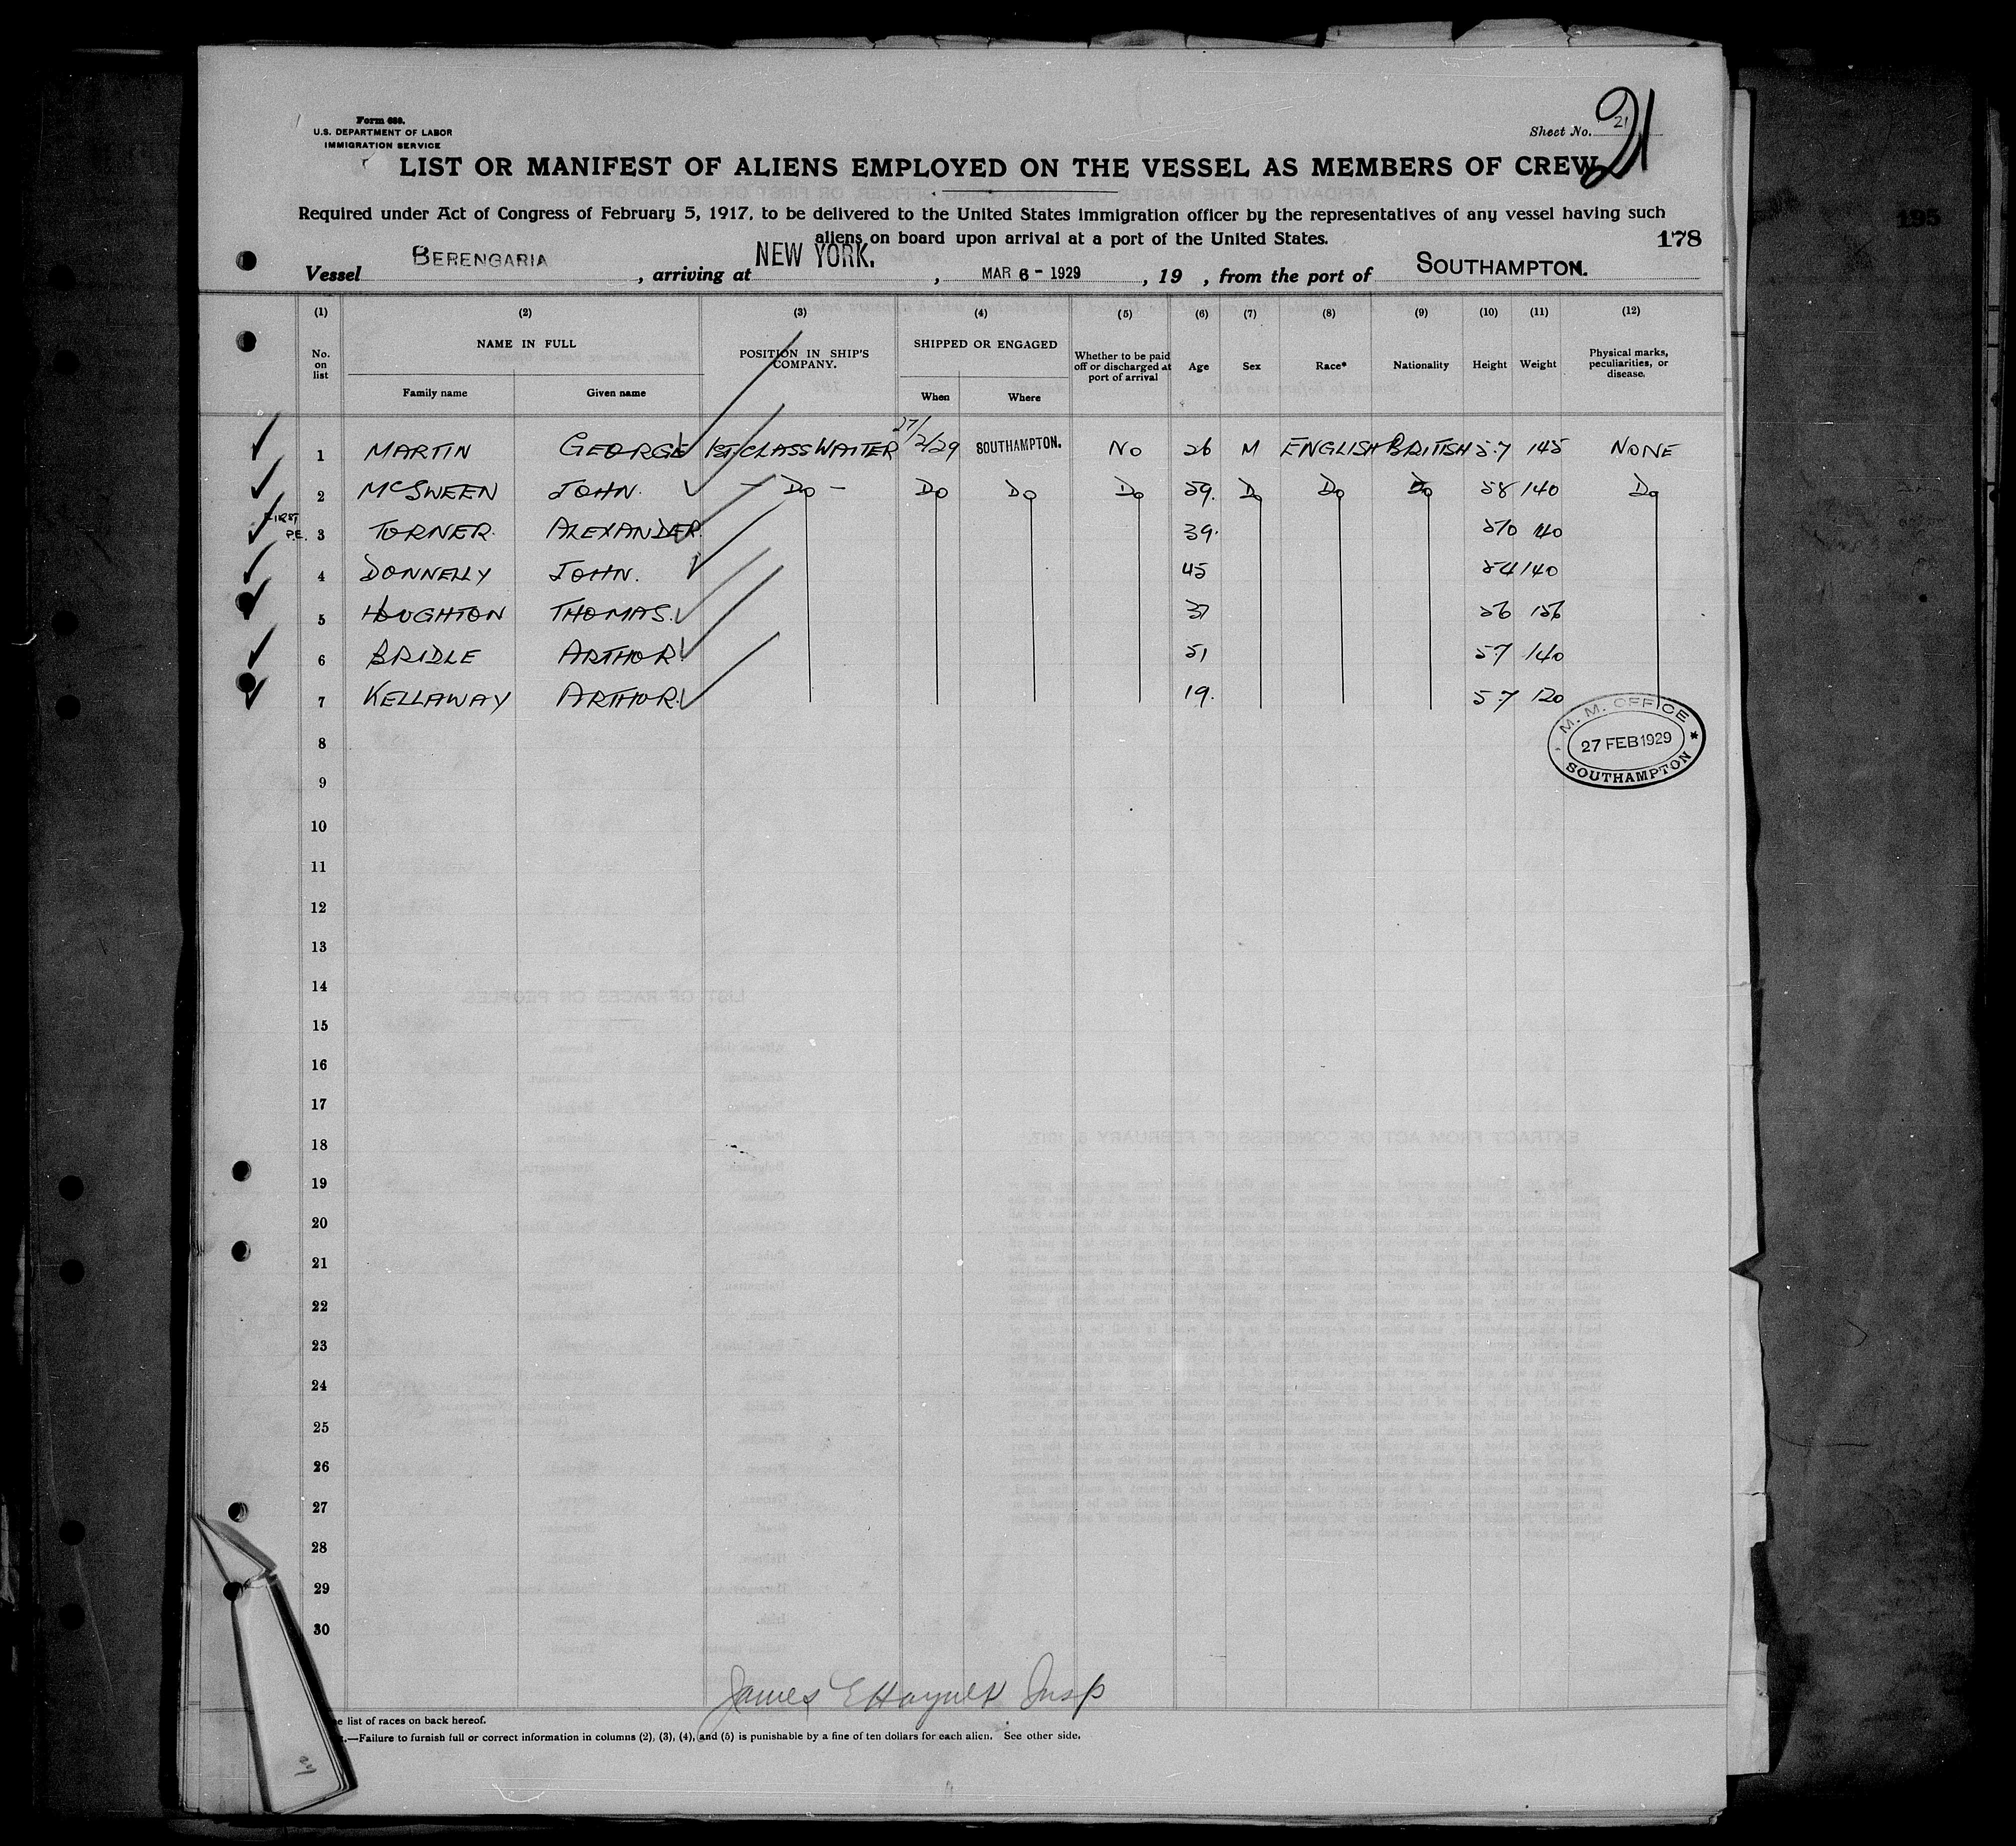 Form 680.
U.S. DEPARTMENT OF LABOR
IMMIGRATION SERVICE
Sheet No. 21
21
LIST OR MANIFEST OF ALIENS EMPLOYED ON THE VESSEL AS MEMBERS OF CREW
Required under Act of Congress of February 5, 1917, to be delivered to the United States immigration officer by the representatives of any vessel having such
aliens on board upon arrival at a port of the United States.
178
195
Vessel BERENGARIA, arriving at NEW YORK., MAR 6 - 1929, 19 , from the port of SOUTHAMPTON.
(1) (2) (3) (4) (5) (6) (7) (8) (9) (10) (11) (12)
No. on list NAME IN FULL POSITION IN SHIP'S COMPANY. SHIPPED OR ENGAGED Whether to be paid off or discharged at port of arrival Age Sex Race* Nationality Height Weight Physical marks, peculiarities, or disease.
Family name Given name When Where
1 MARTIN GEORGE 1ST CLASS WAITER 27/2/29 SOUTHAMPTON. NO 26 M ENGLISH BRITISH 5.7 145 NONE
2 MCSWEEN JOHN. - Do - Do Do Do 59. Do Do Do 58 140 Do
FIRST
P.E. 3 TURNER. ALEXANDER. 39. 510 140
4 DONNELLY JOHN. 45 54 140
5 HOUGHTON THOMAS. 37 56 156
6 BRIDLE ARTHUR. 51 57 140
7 KELLAWAY ARTHUR. 19. 57 120
M. M. OFFICE
27 FEB 1929
SOUTHAMPTON
8
9
10
11
12
13
14
15
16
17
18
19
20
21
22
23
24
25
26
27
28
29
30
James E Insp
list of races on back hereof.
.—Failure to furnish full or correct information in columns (2), (3), (4), and (5) is punishable by a fine of ten dollars for each alien. See other side.